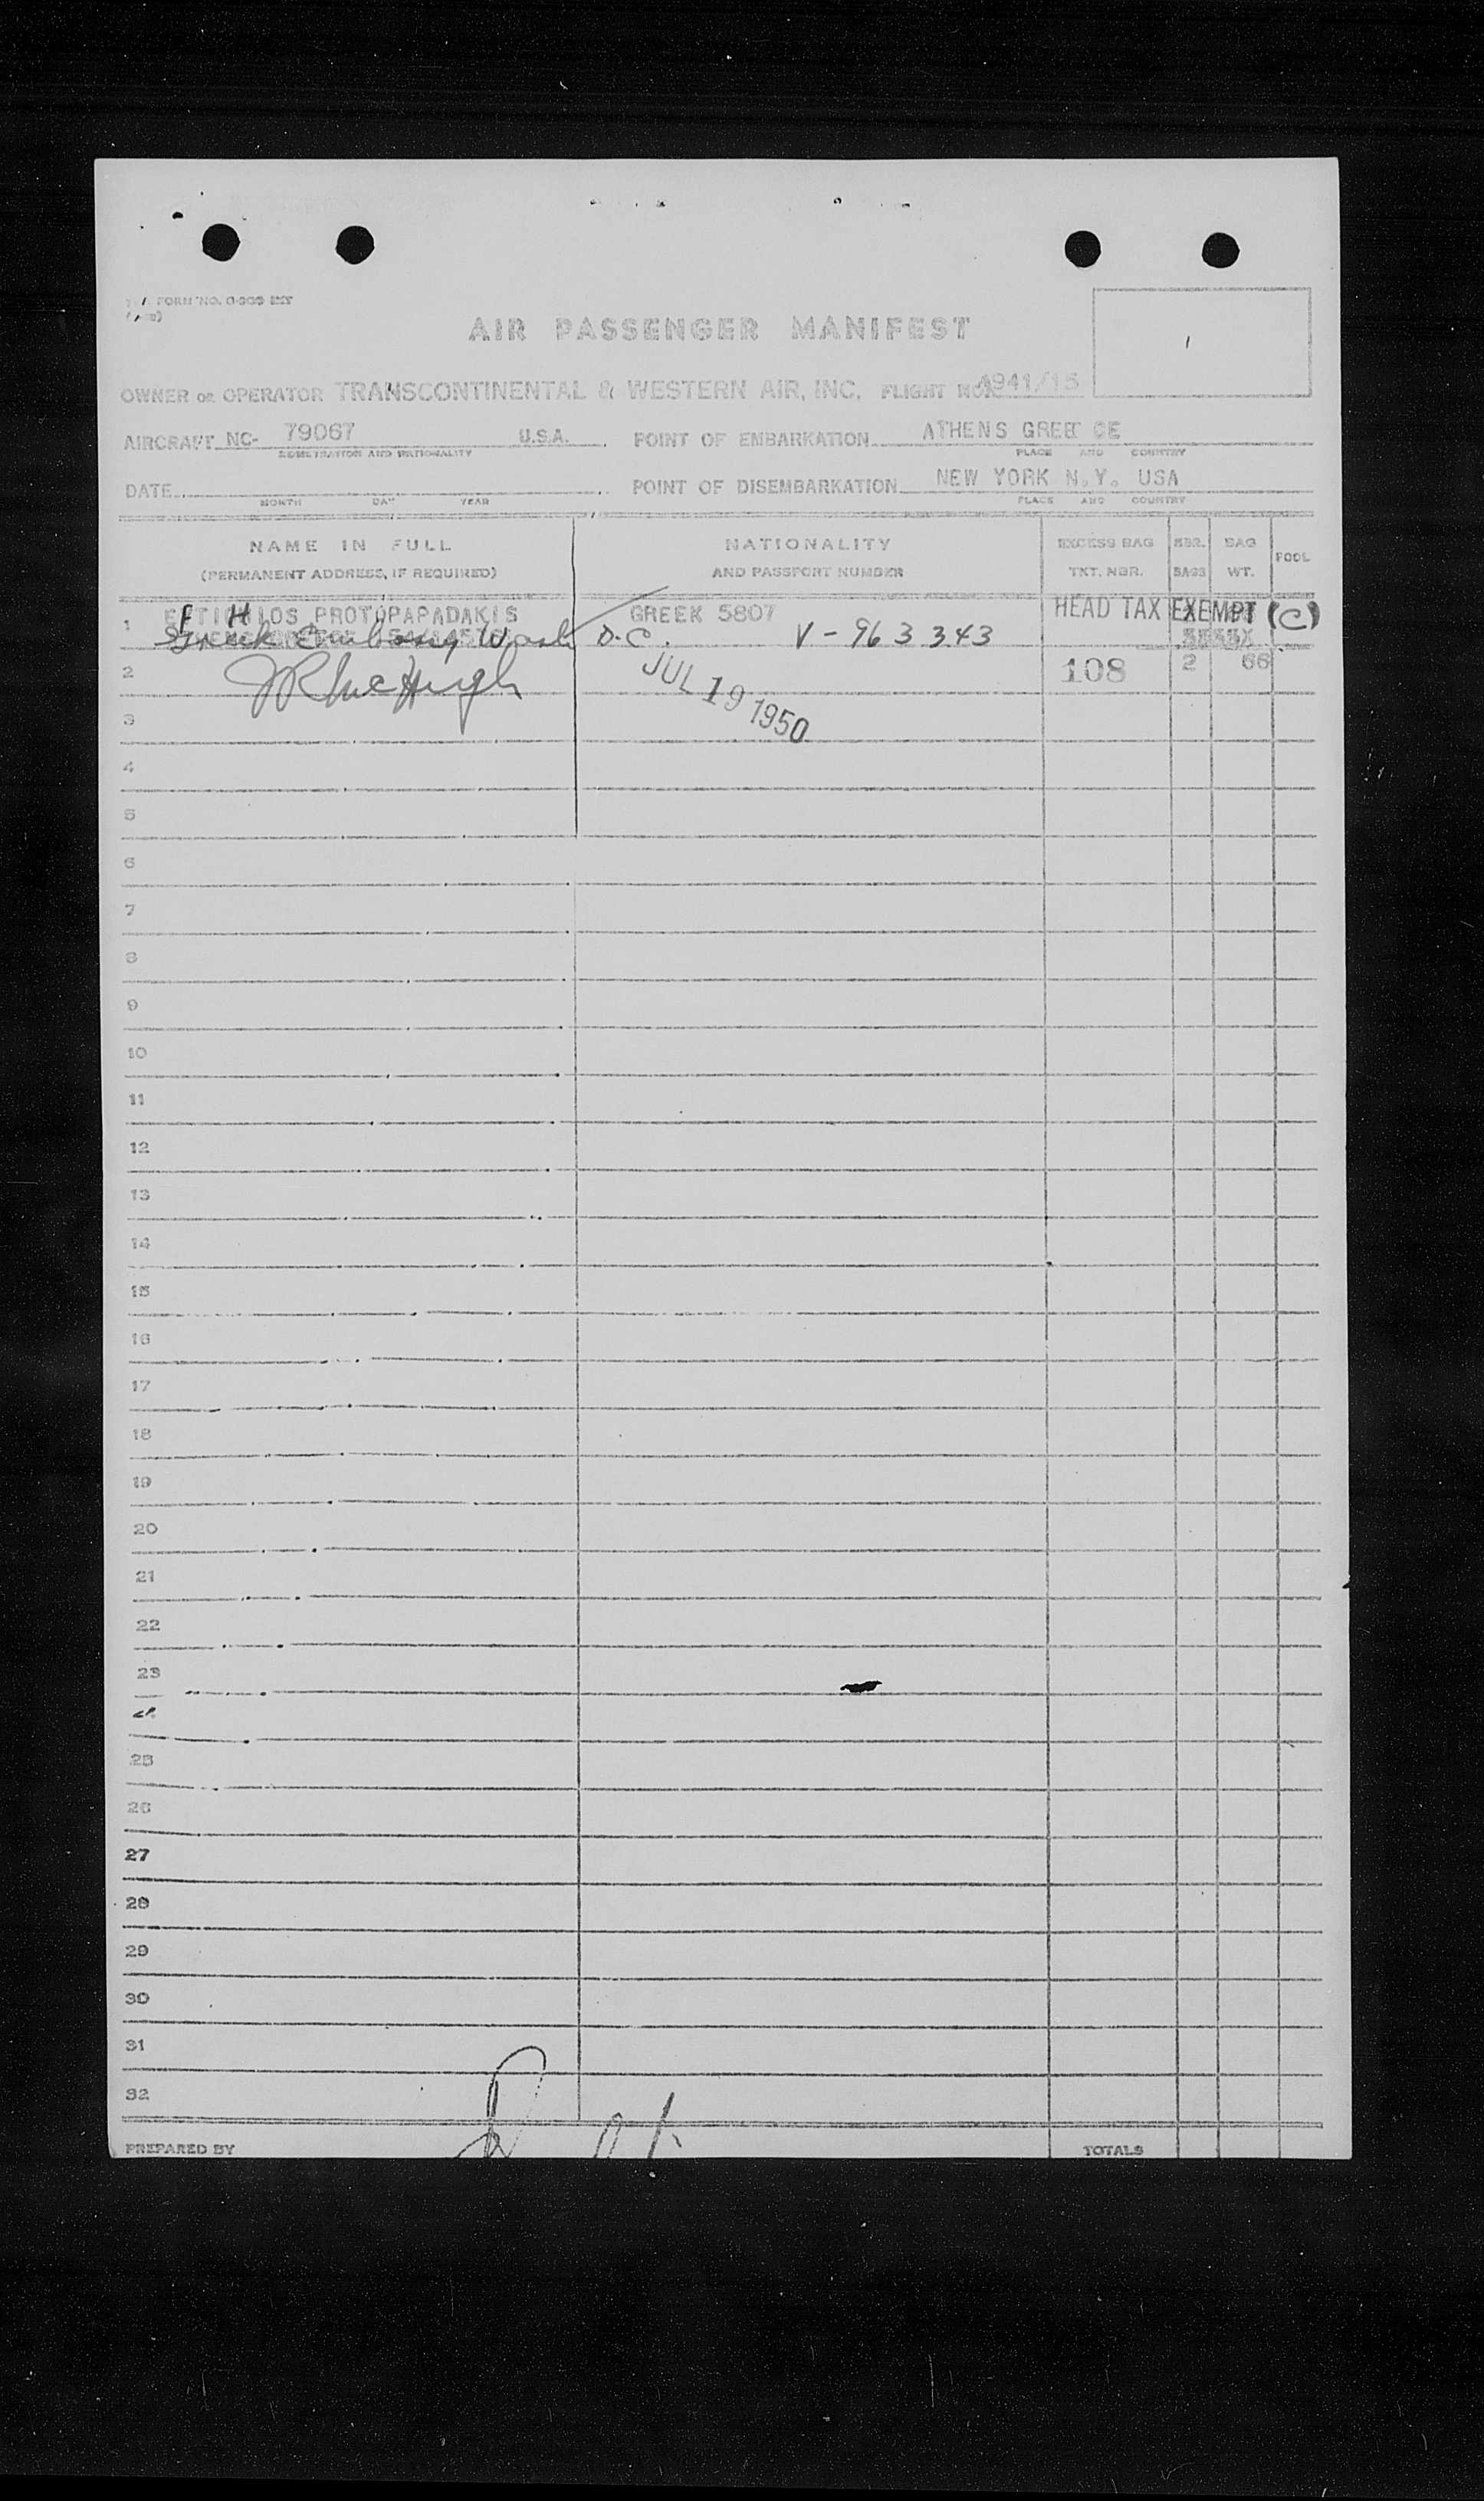 FORM NO. O-309 INT
AIR PASSENGER MANIFEST
OWNER OR OPERATOR TRANSCONTINENTAL & WESTERN AIR, INC. FLIGHT NO. A941/15
AIRCRAFT NC- 79067 U.S.A. POINT OF EMBARKATION ATHENS GREECE
REGISTRATION AND NATIONALITY PLACE AND COUNTRY
DATE POINT OF DISEMBARKATION NEW YORK N.Y. USA
MONTH DAY YEAR PLACE AND COUNTRY
NAME IN FULL NATIONALITY EXCESS BAG NBR. BAG POOL
(PERMANENT ADDRESS, IF REQUIRED) AND PASSPORT NUMBER TKT. NBR. BAGS WT.
1 PROTOPAPADAKIS GREEK 5807 HEAD TAX EXEMPT (C)
Greek Embassy Wash D.C. V-963343
2 JR McHugh JUL 19 1950 108 2 66
3
4
5
6
7
8
9
10
11
12
13
14
15
16
17
18
19
20
21
22
23
24
25
26
27
28
29
30
31
32
PREPARED BY TOTALS